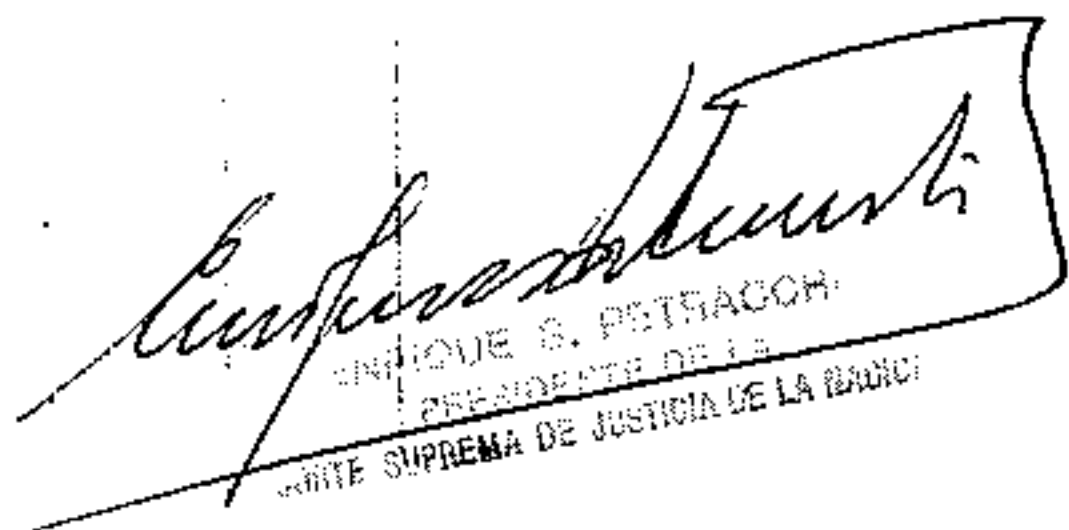 ENRIQUE S. PETRACCHI
PRESIDENTE DE LA
CORTE SUPREMA DE JUSTICIA DE LA NACION